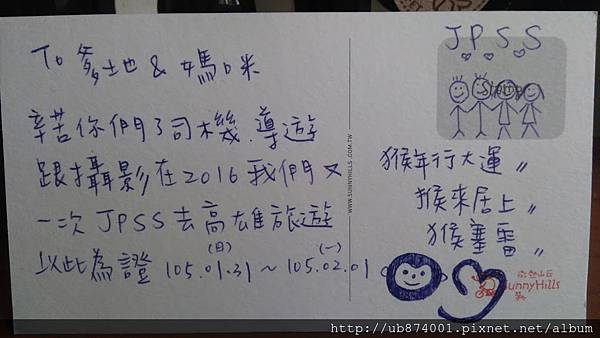 To 爹地 & 媽咪
辛苦你們了司機.導遊
跟攝影在2016我們又
一次JPSS去高雄旅遊
(日) (一)
以此為證 105.01.31~105.02.01
WWW.SUNNYHILLS.COM.TW
JPSS
Stamp
猴年行大運〃
猴來居上〃
猴塞雷〃
微熱山丘
SunnyHills
http://ub874001.pixnet.net/album